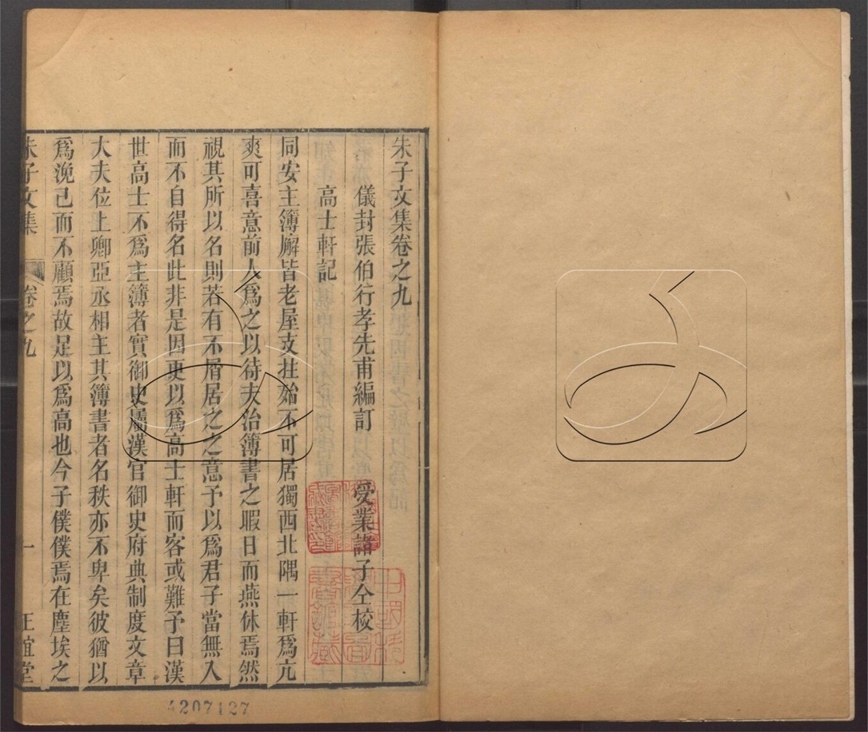 朱子文集卷之九
儀封張伯行孝先甫編訂 受業諸子仝校
高士軒記
同安主簿廨皆老屋支拄殆不可居獨西北隅一軒爲亢
爽可喜意前人爲之以待夫治簿書之暇日而燕休焉然
視其所以名則若有不屑居之之意予以爲君子當無入
而不自得名此非是因更以爲高士軒而客或難予曰漢
世高士不爲主簿者實御史屬漢官御史府典制度文章
大夫位上卿亞丞相主其簿書者名秩亦不卑矣彼猶以
爲浼己而不顧焉故足以爲高也今子僕僕焉在塵埃之
朱子文集 卷之九 一 正誼堂
4207127